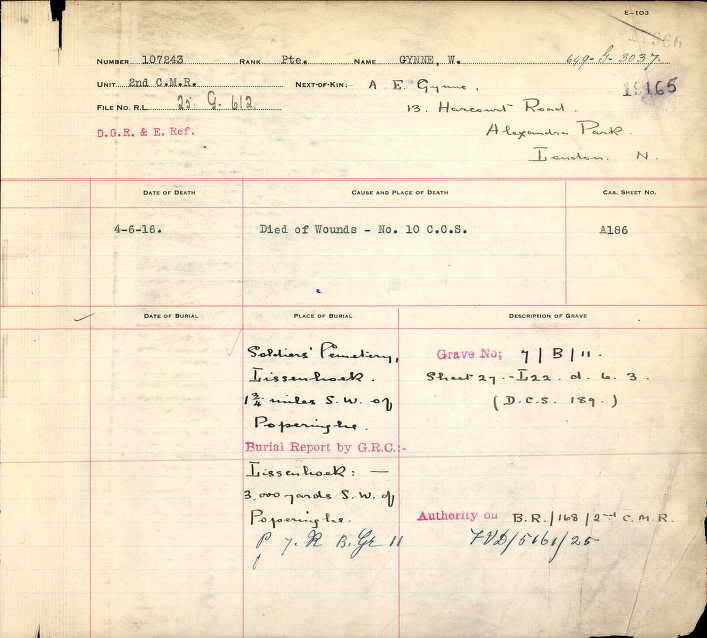 E-103
NUMBER 107243 RANK Pte. NAME GYNNE, W. 649-G-3037.
UNIT 2nd C.M.R. NEXT-OF-KIN: A E. Gynne,
FILE NO. R.L. 25. G. 612. 13. Harcourt Road.
D.G.R. & E. Ref. Alexandra Park.
London. N.
DATE OF DEATH CAUSE AND PLACE OF DEATH CAS. SHEET NO.
4-6-16. Died of Wounds - No. 10 C.C.S. A186
DATE OF BURIAL PLACE OF BURIAL DESCRIPTION OF GRAVE
Soldiers' Cemetery, Grave No; 7 / B / 11.
Lissenhoek. Sheet 27.-L22. d. 6. 3.
1 3/4 miles S.W. of (D.C.S. 189.)
Poperinghe.
Burial Report by G.R.C.:-
Lissenhoek: —
3,000 yards S.W. of
Poperinghe. Authority on B.R./168/2nd C.M.R.
P 7. R B. Gr 11